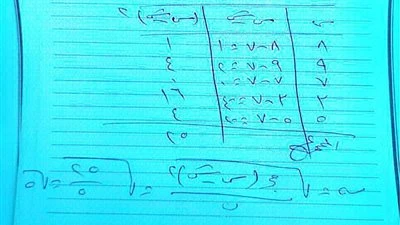 س س-س̄ (س-س̄)²
٨ ٨-٧=١ ١
٩ ٩-٧=٢ ٤
٧ ٧-٧=٠ ٠
٣ ٣-٧=-٤ ١٦
٥ ٥-٧=-٢ ٤
٢٥
√(س-س̄)²/ن = √٢٥/٥ = √٥